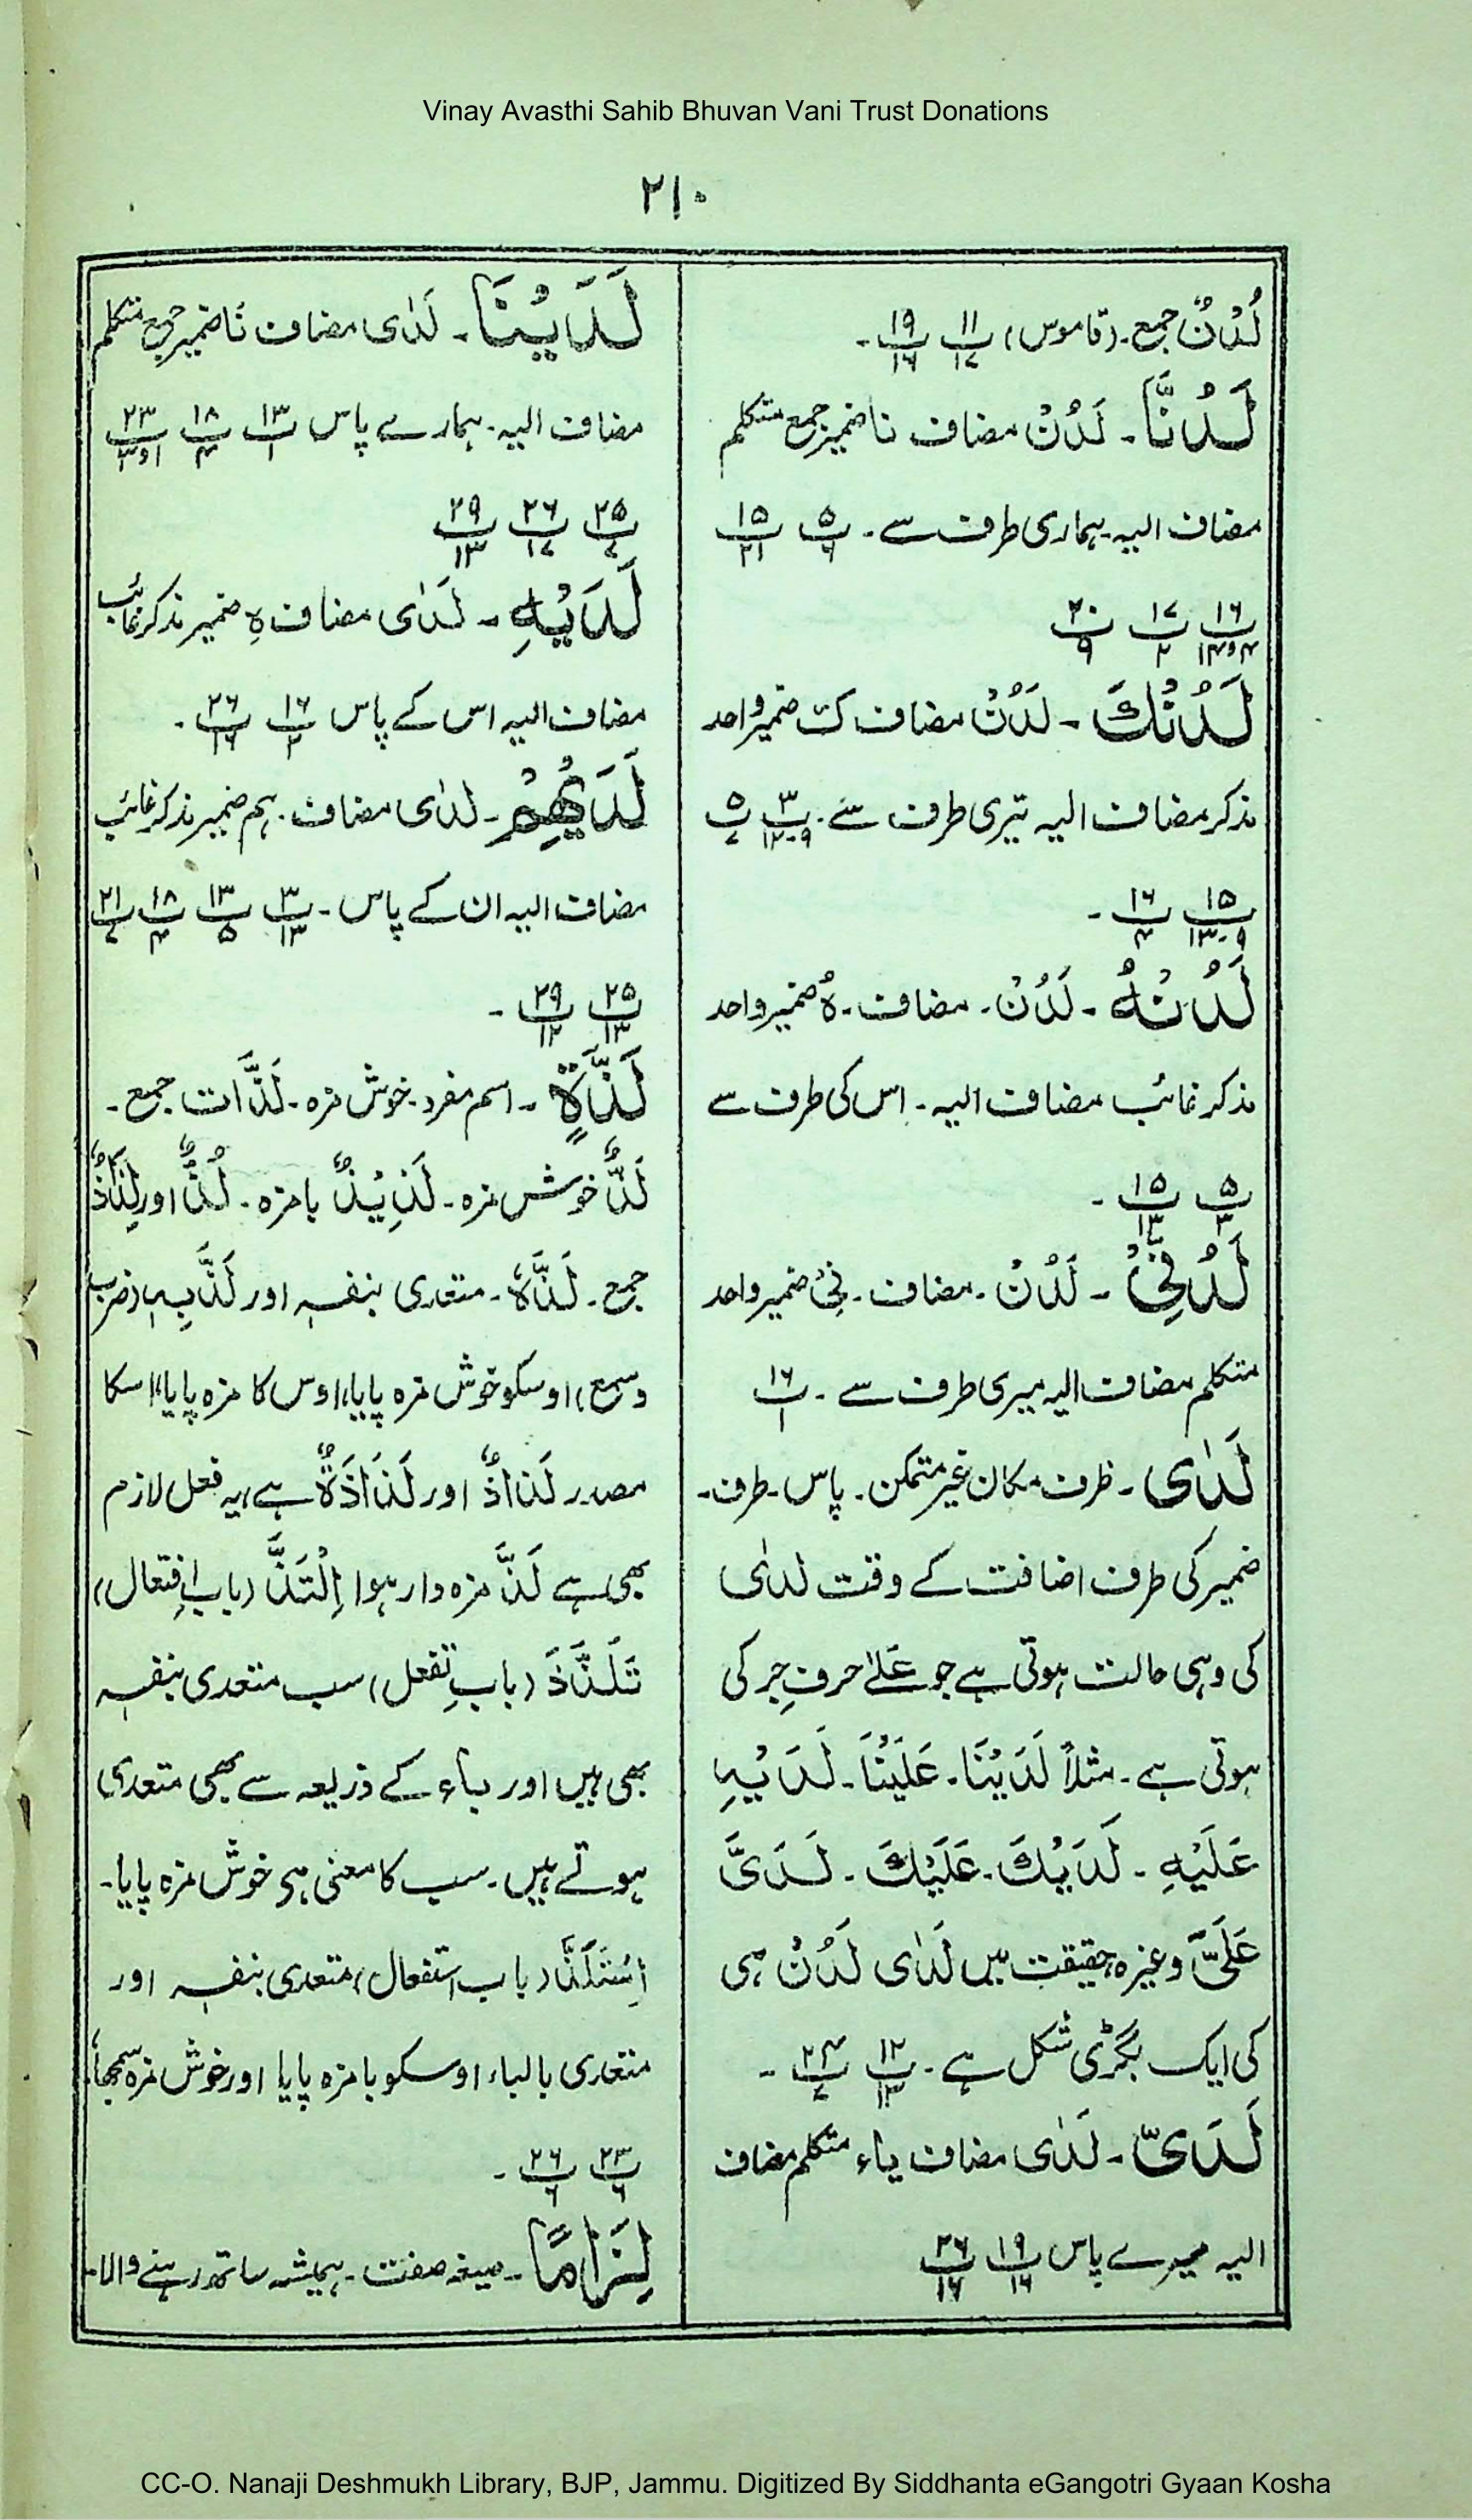 Vinay Avasthi Sahib Bhuvan Vani Trust Donations
۲۱۰
لُدْنٌ جمع۔ (قاموس) پ۱۱/۱۷ پ۱۹/۱۶۔
لَدُنَّا۔ لَدُنْ مضاف نا ضمیر جمع متکلم
مضاف الیہ۔ ہماری طرف سے۔ پ۵/۶ پ۱۵/۲۱
پ۱۶/۴و۱۴ پ۱۷/۲ پ۲۰/۹
لَدُنْكَ۔ لَدُنْ مضاف کَ ضمیر واحد
مذکر مضاف الیہ تیری طرف سے۔ پ۳/۹۔۱۲ پ۵/۷
پ۱۵/۹۔۱۳ پ۱۶/۴۔
لَدُنْهُ۔ لَدُنْ۔ مضاف۔ ہُ ضمیر واحد
مذکر غائب مضاف الیہ۔ اس کی طرف سے
پ۵/۳ پ۱۵/۱۳۔
لَدُنِّیْ۔ لَدُنْ۔ مضاف۔ نِیْ ضمیر واحد
متکلم مضاف الیہ میری طرف سے۔ پ۱۶/۱
لَدٰی۔ ظرف مکان غیر متمکن۔ پاس۔ طرف۔
ضمیر کی طرف اضافت کے وقت لدٰی
کی وہی حالت ہوتی ہے جو عَلےٰ حرفِ جر کی
ہوتی ہے۔ مثلاً لَدَیْنَا۔ عَلَیْنَا۔ لَدَیْہِ
عَلَیْہِ۔ لَدَیْكَ۔ عَلَیْكَ۔ لَدَیَّ
عَلَیَّ وغیرہ حقیقت میں لَدٰی لَدُنْ ہی
کی ایک بگڑی شکل ہے۔ پ۱۲/۱۳ پ۲۴/۷۔
لَدَیَّ۔ لَدٰی مضاف یاء متکلم مضاف
الیہ میرے پاس پ۱۹/۱۶ پ۲۶/۱۶
لَدَیْنَا۔ لَدٰی مضاف نَا ضمیر جمع متکلم
مضاف الیہ۔ ہمارے پاس پ۱۳/۱ پ۱۸/۴ پ۲۳/۱و۳
پ۲۵/۷ پ۲۶/۱۷ پ۲۹/۱۳
لَدَیْہِ۔ لَدٰی مضاف ہِ ضمیر مذکر غائب
مضاف الیہ اس کے پاس پ۱۶/۲ پ۲۶/۱۶۔
لَدَیْهِمْ۔ لدٰی مضاف۔ ہم ضمیر مذکر غائب
مضاف الیہ ان کے پاس۔ پ۳/۱۳ پ۱۳/۵ پ۱۸/۴ پ۲۱/۷
پ۲۵/۱۳ پ۲۹/۱۲۔
لَذَّةٍ۔ اسم مفرد۔ خوش مزہ۔ لَذَّات جمع۔
لَذٌّ خوش مزہ۔ لَذِیْذٌ بامزہ۔ لُذٌّ اور لِذَاذٌ
جمع۔ لَذَّہٗ۔ متعدی بنفسہ اور لَذَّ بِہِ (ضرب
وسمع) اوسکو خوش مزہ پایا، اوس کا مزہ پایا، اسکا
مصدر لَذَاذٌ اور لَذَاذَةٌ ہے، یہ فعل لازم
بھی ہے لَذَّ مزہ دار ہوا اِلْتَذَّ (باب اِفتعال)
تَلَذَّذَ (بابِ تفعل) سب متعدی بنفسہ
بھی ہیں اور باء کے ذریعہ سے بھی متعدی
ہوتے ہیں۔ سب کا معنی ہی خوش مزہ پایا۔
اِسْتَلَذَّ (باب استفعال) متعدی بنفسہ اور
متعدی بالباء اوسکو بامزہ پایا اور خوش مزہ سمجھا،
پ۲۳/۶ پ۲۶/۶۔
لِزَامًا۔ صیغہ صفت۔ ہمیشہ ساتھ رہنے والا۔
CC-O. Nanaji Deshmukh Library, BJP, Jammu. Digitized By Siddhanta eGangotri Gyaan Kosha